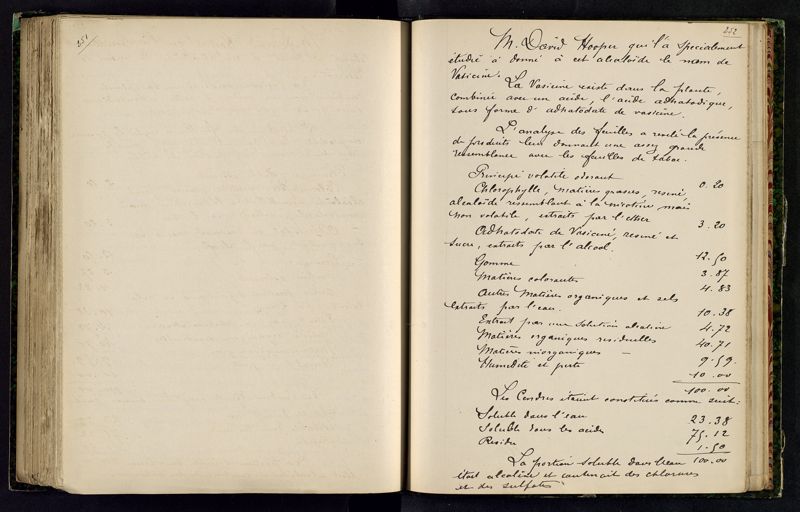 251
252
M. David Hooper qui l'a spécialement
étudié a donné à cet alcaloïde le nom de
Vasicine.
La Vasicine existe dans la plante,
combinée avec un acide, l'acide adhatodique,
sous forme d'adhatodate de vasicine.
L'analyse des feuilles a révélé la présence
de produits leur donnant une assez grande
ressemblance avec les feuilles de tabac.
Principe volatile odorant 0.20
Chlorophylle, matières grasses, résine,
alcaloïde ressemblant à la nicotine mais
non volatile, extraits par l'éther 3.20
Adhatodate de Vasicine, résine et
sucre, extraits par l'alcool. 12.50
Gomme 3.87
Matières colorantes 4.83
Autres matières organiques et sels
extraits par l'eau. 10.38
Extrait par une solution alcaline 4.72
Matières organiques résiduelles 40.71
Matières inorganiques – 9.59.
Humidité et perte 10.00
100.00
Les Cendres étaient constituées comme suit:
Soluble dans l'eau 23.38
Soluble dans les acides 75.12
Résidu 1.50
100.00
La portion soluble dans l'eau
était alcaline et contenait des chlorures
et des sulfates